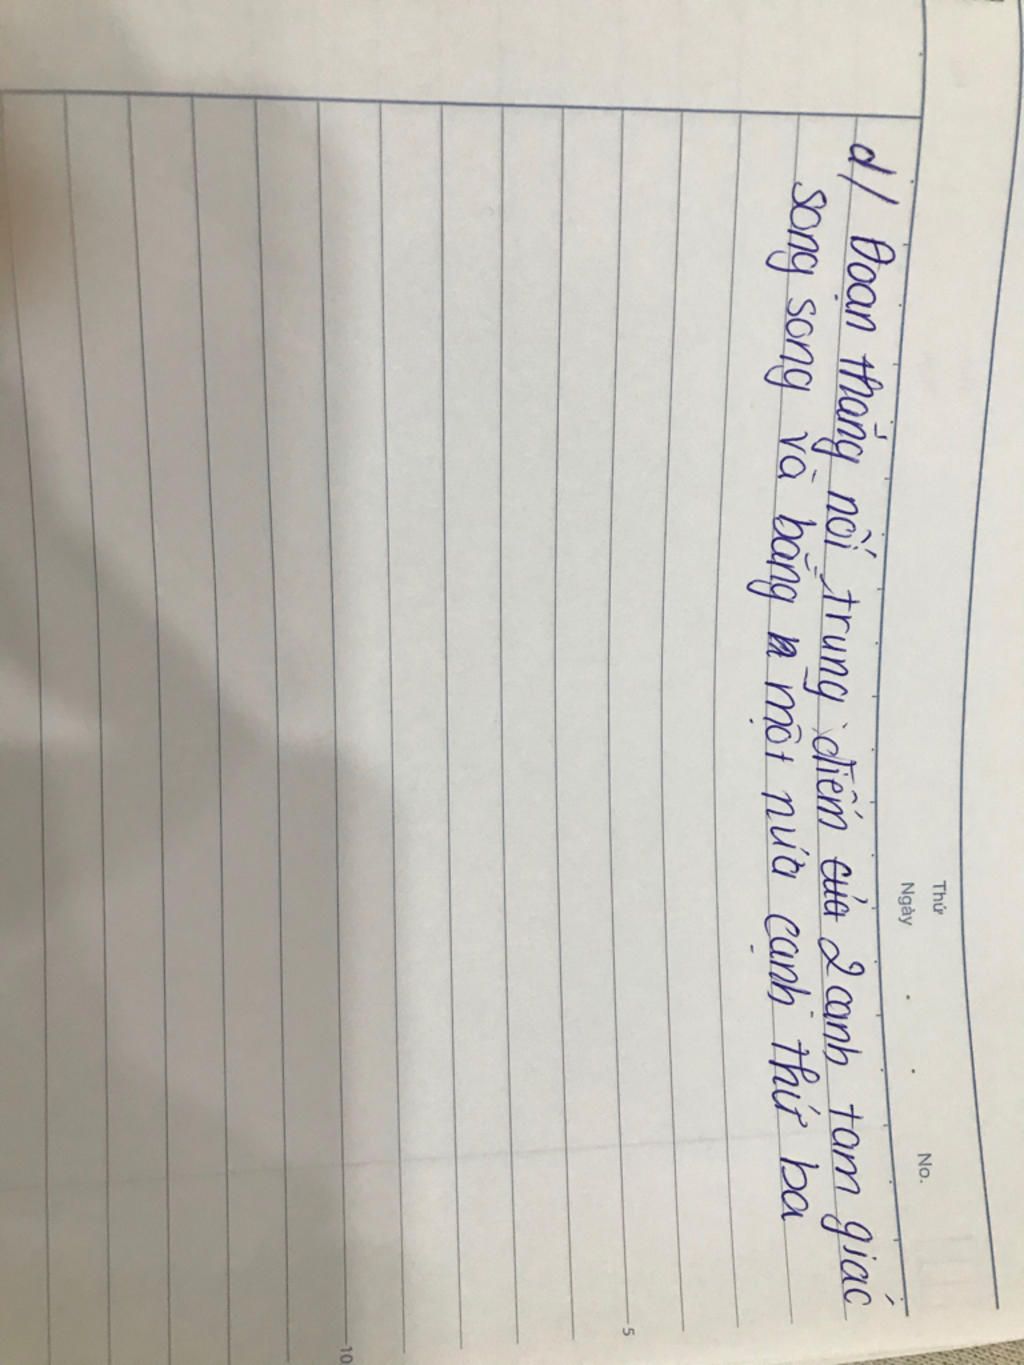 Thứ
Ngày . . No.
d/ Đoạn thẳng nối trung điểm của 2 cạnh tam giác
song song và bằng một nửa cạnh thứ ba
5
10